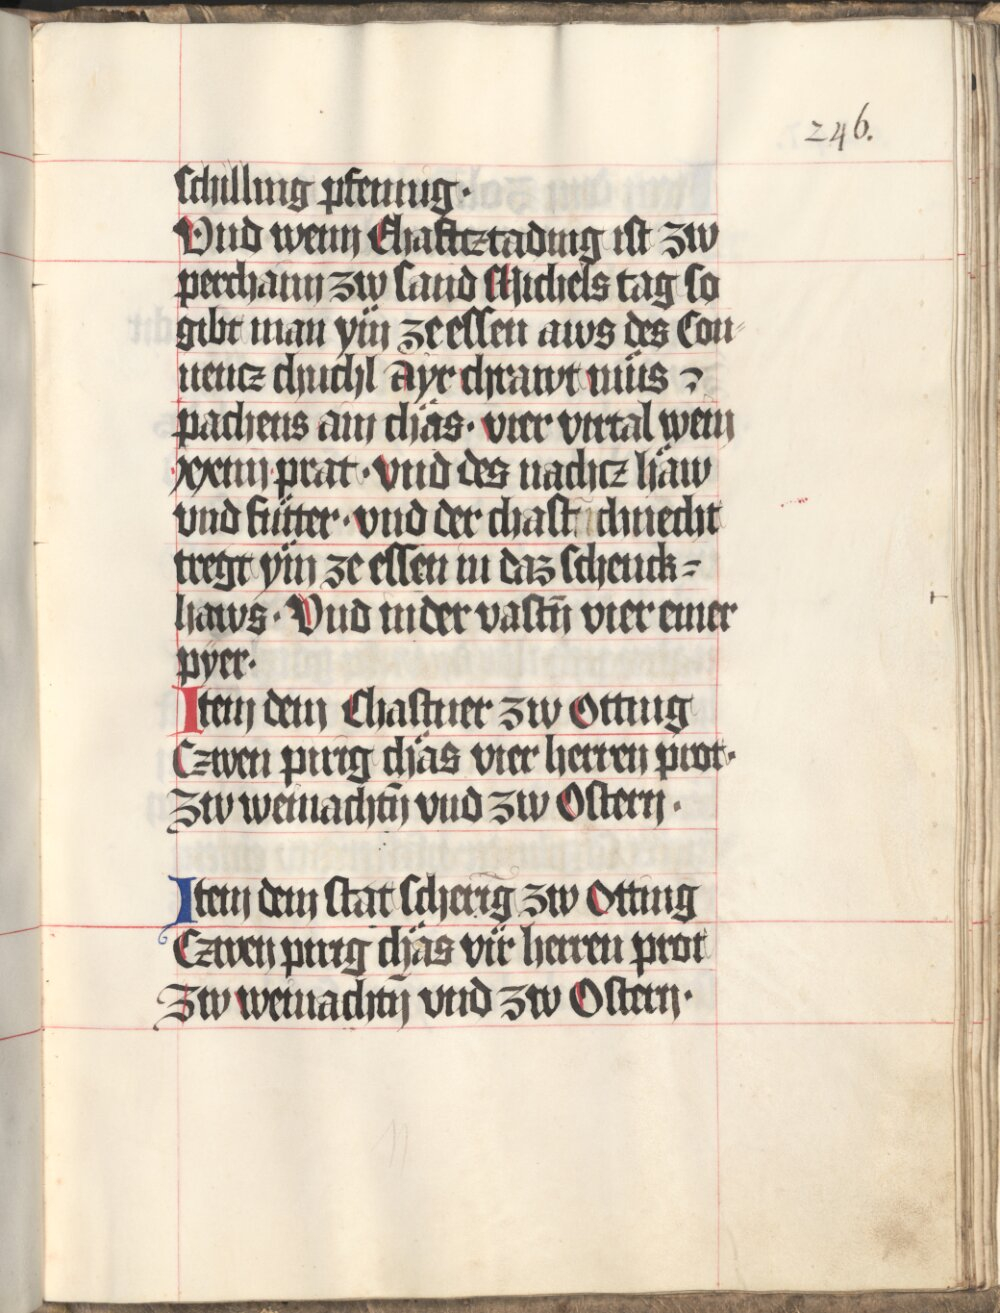 246.
schilling pfennig·
Vnd wenn Ehafttztading ist zw
perchaim zw sand Michels tag so
gibt man yin ze essen aws des Con⸗
uentz chuchl Ayr chrawt müs ⁊
pachens ain chäs· vier virtal wein
xxiiij prat· vnd des nachtz häw
vnd fütter· vnd der chastn chnecht
tregt yin ze essen in daz schenck⸗
haws· Vnd in der vastñ vier emer
pyer·
Item dem Chastner zw Otting
Czwen purg chäs vier herren prot·
Zw weinachtñ vnd zw Ostern·
Item dem stat scherig zw Otting
Czwen purg chäs vir herren prot
Zw weinachtñ vnd zw Ostern·